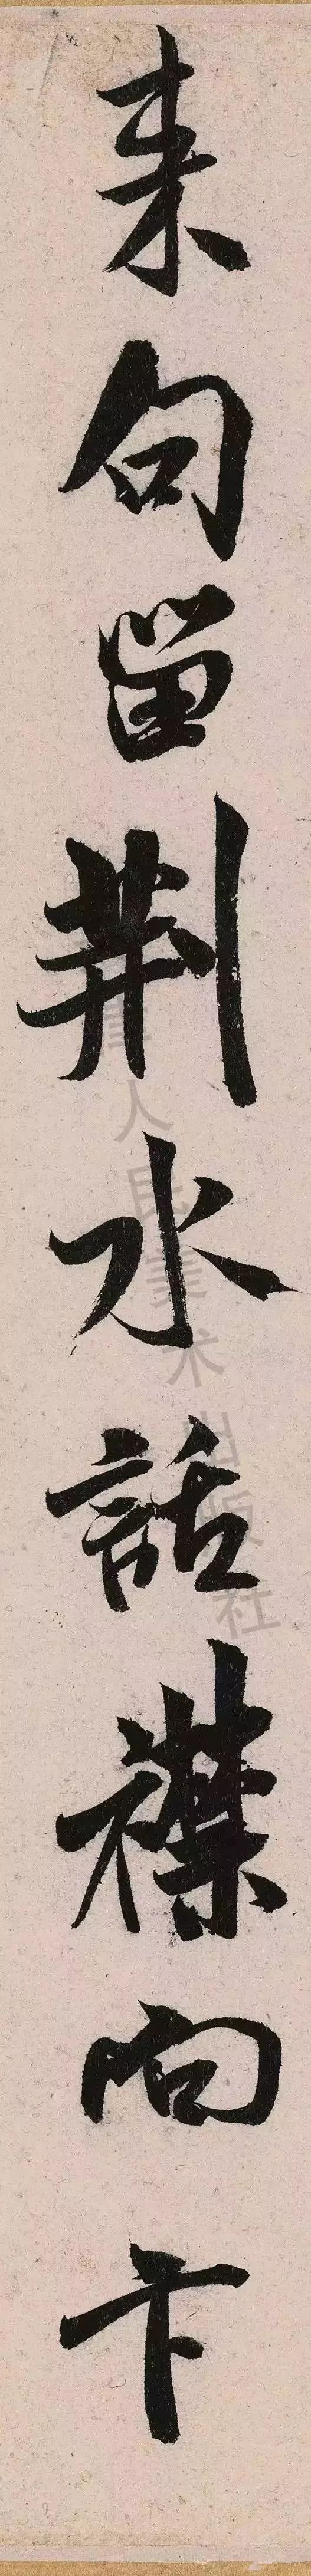 来句留荆水話襟向卞
人民美术出版社